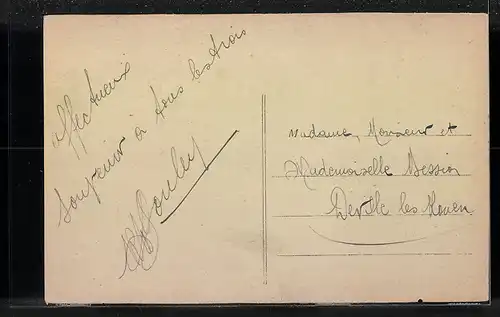 affectueux
souvenir à tous les trois
Madame, Monsieur et
Mademoiselle Bession
Déville les Rouen